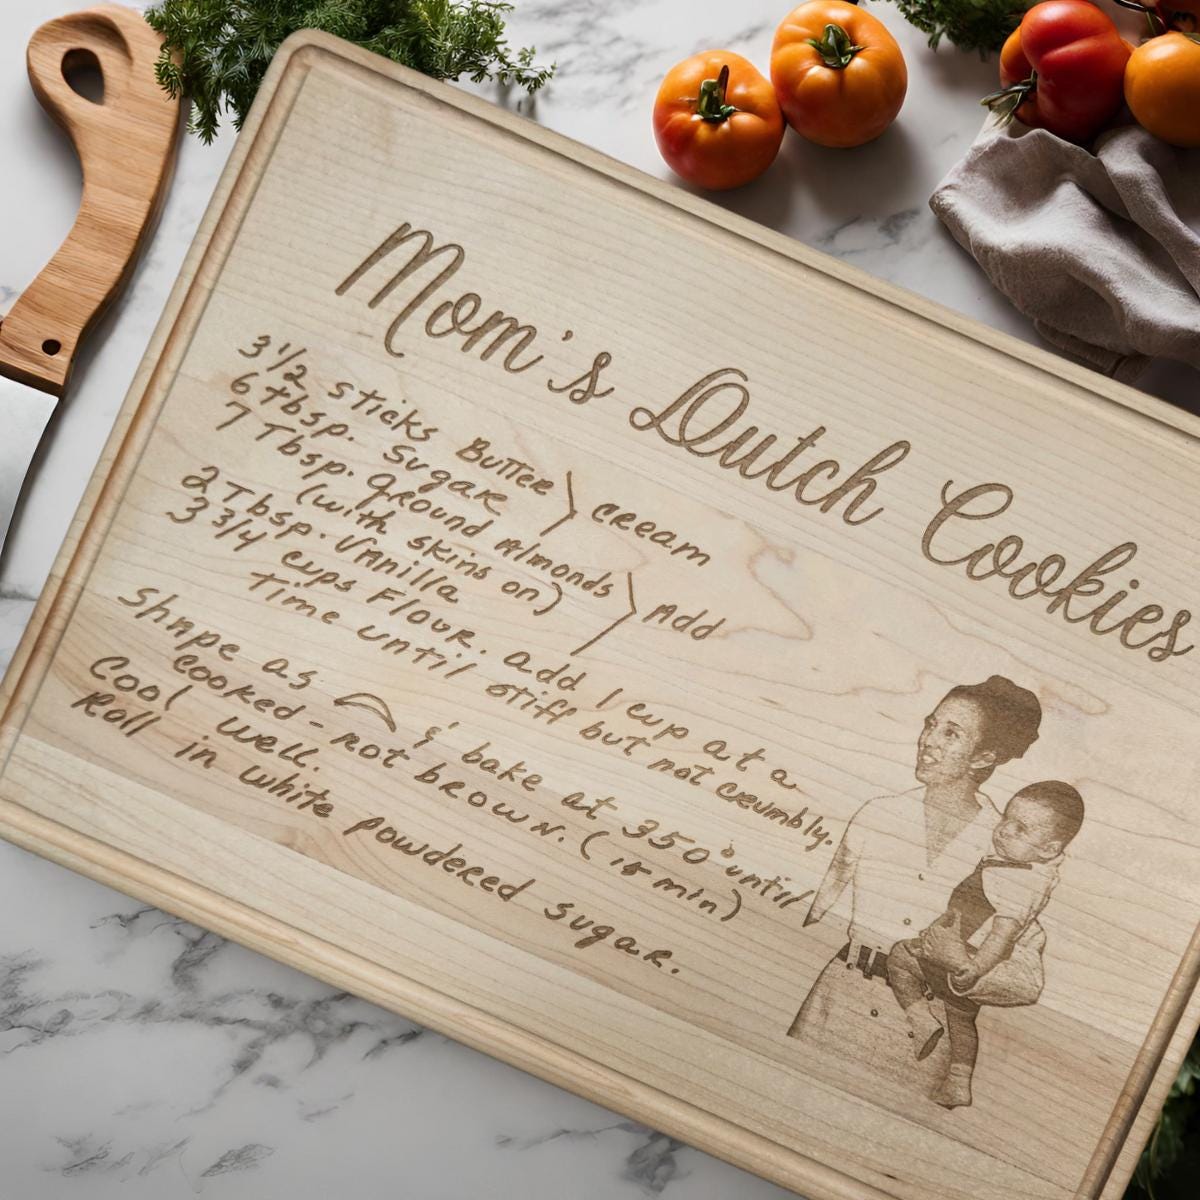 Mom's Dutch Cookies
3 1/2 sticks Butter
6 tbsp. Sugar } cream
7 Tbsp. ground Almonds
(with skins on) } Add
2 Tbsp. Vanilla
3 3/4 cups Flour. add 1 cup at a
Time until stiff but not crumbly.
Shape as ⌒ & bake at 350° until
cooked - not brown. (15 min)
Cool well.
Roll in white powdered sugar.